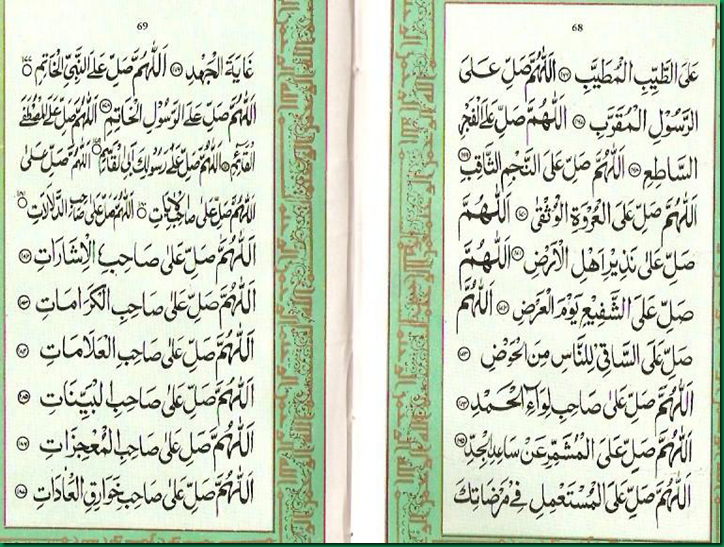 68
عَلَى الطَّيِّبِ الْمُطَيَّبِ اَللّٰهُمَّ صَلِّ عَلَى
الرَّسُوْلِ الْمُقَرَّبِ اَللّٰهُمَّ صَلِّ عَلَى الْفَجْرِ
السَّاطِعِ اَللّٰهُمَّ صَلِّ عَلَى النَّجْمِ الثَّاقِبِ
اَللّٰهُمَّ صَلِّ عَلَى الْعُرْوَةِ الْوُثْقٰى اَللّٰهُمَّ
صَلِّ عَلٰى نَذِيْرِ اَهْلِ الْاَرْضِ اَللّٰهُمَّ
صَلِّ عَلَى الشَّفِيْعِ يَوْمَ الْعَرْضِ اَللّٰهُمَّ
صَلِّ عَلَى السَّاقِيْ لِلنَّاسِ مِنَ الْحَوْضِ
اَللّٰهُمَّ صَلِّ عَلٰى صَاحِبِ لِوَاۤءِ الْحَمْدِ
اَللّٰهُمَّ صَلِّ عَلَى الْمُشَمِّرِ عَنْ سَاعِدِ الْجِدِّ
اَللّٰهُمَّ صَلِّ عَلَى الْمُسْتَعْمِلِ فِيْ مَرْضَاتِكَ
69
غَايَةَ الْجَهْدِ اَللّٰهُمَّ صَلِّ عَلَى النَّبِيِّ الْخَاتِمِ
اَللّٰهُمَّ صَلِّ عَلَى الرَّسُوْلِ الْخَاتِمِ اَللّٰهُمَّ صَلِّ عَلَى الْمُصْطَفَى
الْقَائِمِ اَللّٰهُمَّ صَلِّ عَلٰى رَسُوْلِكَ اَبِي الْقَاسِمِ اَللّٰهُمَّ صَلِّ عَلٰى
اَللّٰهُمَّ صَلِّ عَلٰى صَاحِبِ الْاٰيَاتِ اَللّٰهُمَّ صَلِّ عَلٰى صَاحِبِ الدَّلَالَاتِ
اَللّٰهُمَّ صَلِّ عَلٰى صَاحِبِ الْاِشَارَاتِ
اَللّٰهُمَّ صَلِّ عَلٰى صَاحِبِ الْكَرَامَاتِ
اَللّٰهُمَّ صَلِّ عَلٰى صَاحِبِ الْعَلَامَاتِ
اَللّٰهُمَّ صَلِّ عَلٰى صَاحِبِ الْبَيِّنَاتِ
اَللّٰهُمَّ صَلِّ عَلٰى صَاحِبِ الْمُعْجِزَاتِ
اَللّٰهُمَّ صَلِّ عَلٰى صَاحِبِ خَوَارِقِ الْعَادَاتِ